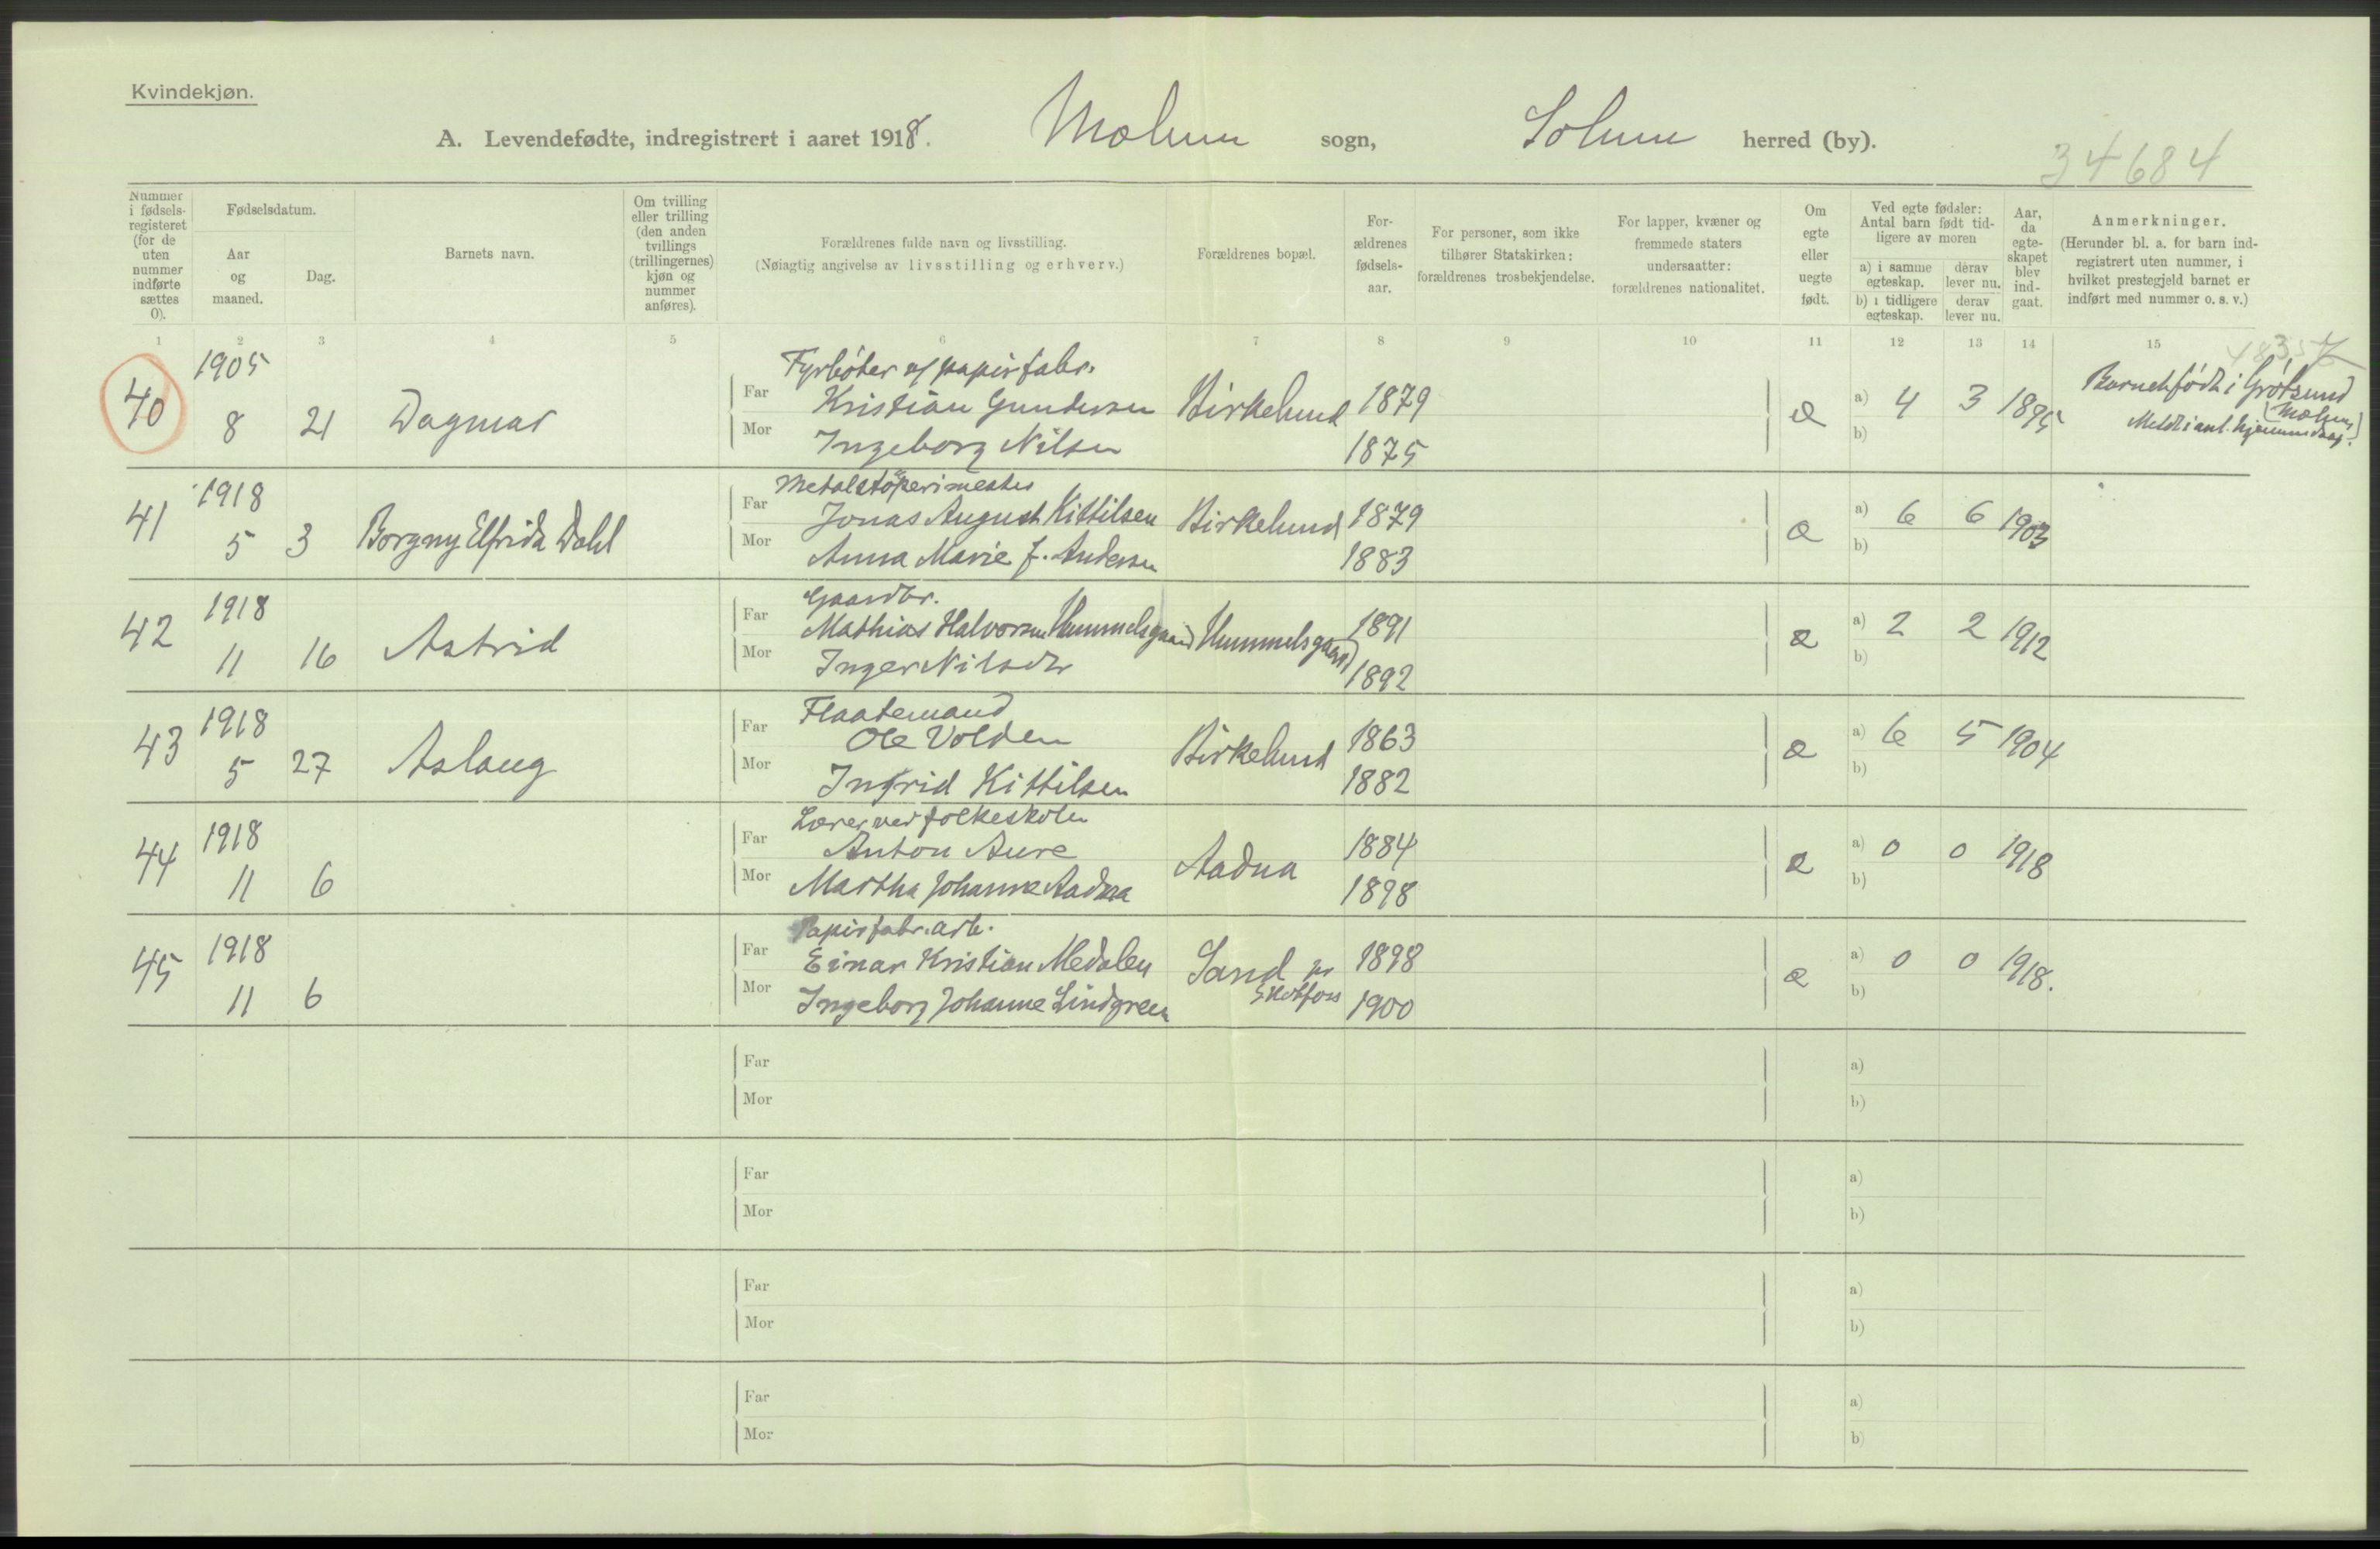 Kvindekjøn.
A. Levendefødte, indregistrert i aaret 1918. Mælum sogn, Solum herred (by).
34684
Nummer i fødsels-registeret (for de uten nummer indførte sættes 0).
Fødselsdatum.
Aar og maaned.
Dag.
Barnets navn.
Om tvilling eller trilling (den anden tvillings (trillingernes) kjøn og nummer anføres).
Forældrenes fulde navn og livsstilling.
(Nøiagtig angivelse av livsstilling og erhverv.)
Forældrenes bopæl.
For-ældrenes fødsels-aar.
For personer, som ikke tilhører Statskirken: forældrenes trosbekjendelse.
For lapper, kvæner og fremmede staters undersaatter: forældrenes nationalitet.
Om egte eller uegte født.
Ved egte fødsler: Antal barn født tid-ligere av moren
a) i samme egteskap. derav lever nu.
b) i tidligere egteskap. derav lever nu.
Aar, da egte-skapet blev ind-gaat.
Anmerkninger.
(Herunder bl. a. for barn ind-registrert uten nummer, i hvilket prestegjeld barnet er indført med nummer o. s. v.)
1 2 3 4 5 6 7 8 9 10 11 12 13 14 15
40 1905 8 21 Dagmar
Fyrbøter v/ papirfabr.
Far Kristian Gundersen Birkelund 1879
Mor Ingeborg Nilsen 1875
e a) 4 3 1895
b)
Barnet født i Grötsund
(Mælum)
41 1918 5 3 Borgny Elfrida Dahl
Metalstøperimester
Far Jonas August Kittilsen Birkelund 1879
Mor Anna Marie J. Andersen 1883
e a) 6 6 1903
b)
42 1918 11 16 Astrid
Gaardbr.
Far Mathias Halvorsen Hummelsgaard Hummelsgaard 1891
Mor Inger Nilsdtr 1892
e a) 2 2 1912
b)
43 1918 5 27 Aslaug
Flaatemand
Far Ole Volden Birkelund 1863
Mor Ingrid Kittilsen 1882
e a) 6 5 1904
b)
44 1918 11 6
Lærer ved folkeskolen
Far Anton Aure Aadna 1884
Mor Martha Johanne Aadna 1898
e a) 0 0 1918
b)
45 1918 11 6
Papirfabr. arb.
Far Einar Kristian Medalen Sand pr Skotfoss 1898
Mor Ingeborg Johanne Lindgreen 1900
e a) 0 0 1918.
b)
Far a)
Mor b)
Far a)
Mor b)
Far a)
Mor b)
Far a)
Mor b)